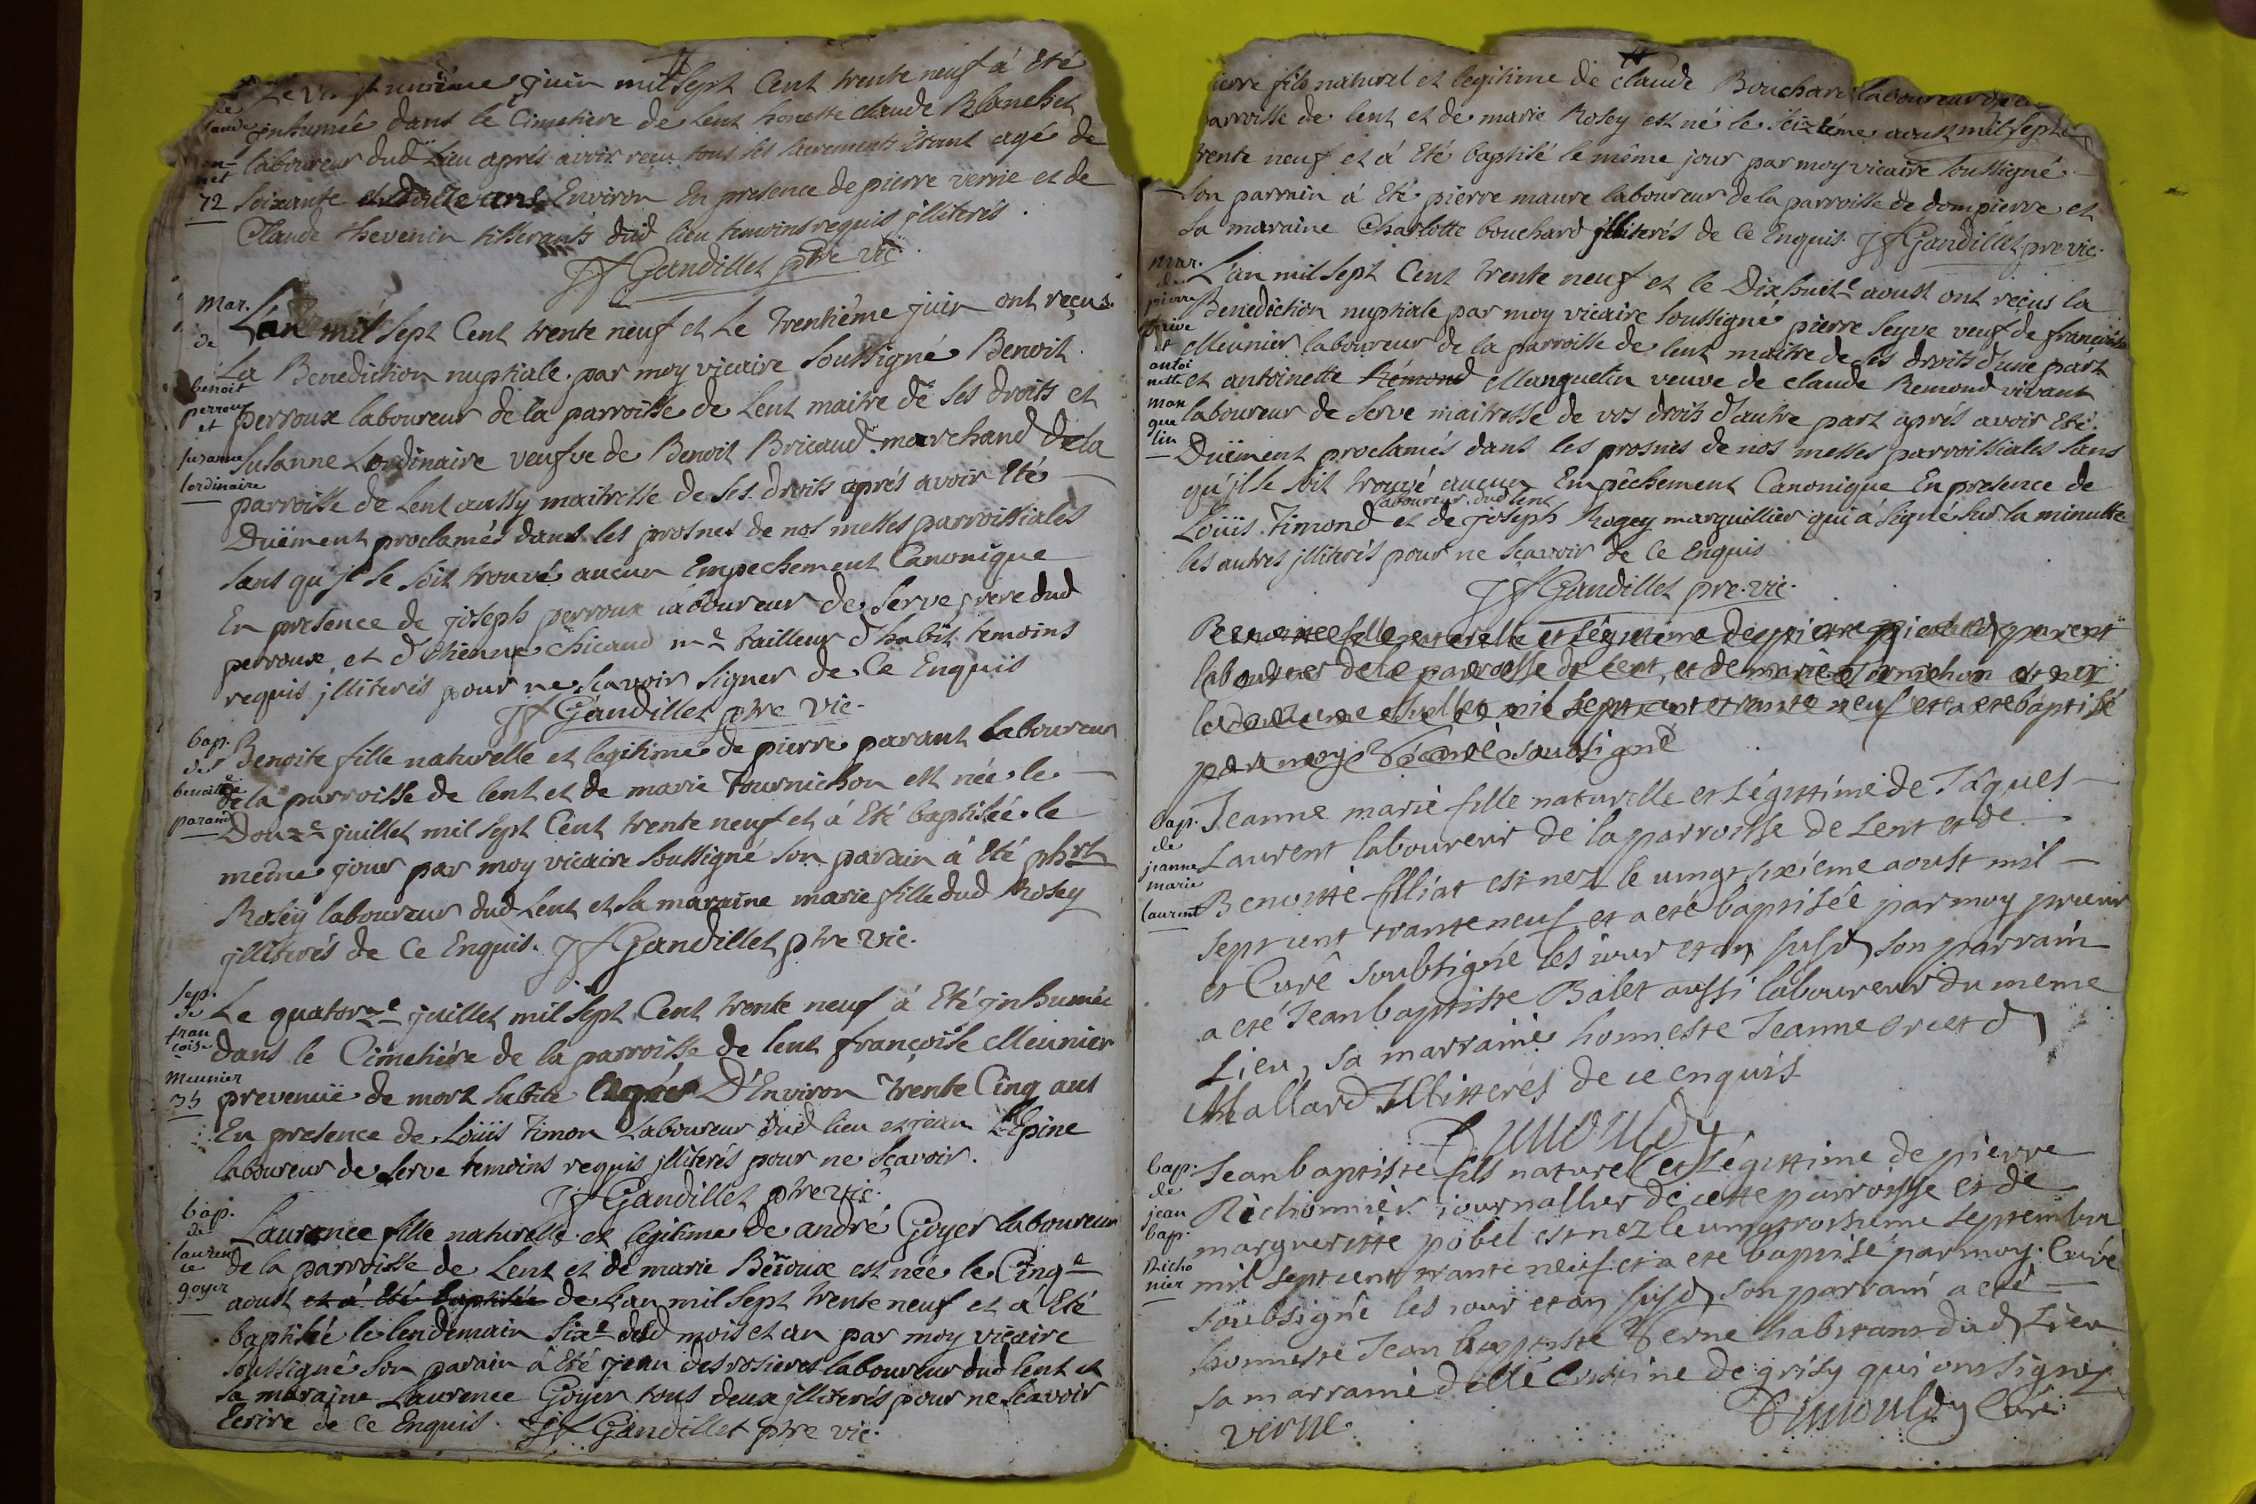 Le vingt unième juin mil Sept Cent trente neuf à Eté
inhumée dans le Cimetiere de Lent honette claude Blanchet
laboureur dud Lieu aprés avoir reçu tous ses sacrements étant agé de
72 Soixante et douze ans Environ En presence de pierre verne et de
Claude thevenin tisserants dud lieu temoins requis jlliterés.
JfGandillet ptre vic.
Mar.
de
benoit
perroux
et
suzanne
lordinaire
L'an mil Sept Cent trente neuf et Le Trentiéme juin ont reçus
La Benediction nuptiale par moy vicaire Soussigné Benoit
perroux laboureur de la parroisse de Lent maitre de Ses droits et
Susanne Lordinaire veufve de Benoit Bricaud marchand de la
parroisse de Lent aussy maitresse de Ses droits aprés avoir Eté
Düëment proclamés dans les prosnes de nos messes parroissiales
sans qu'jl se soit trouvé aucun Empechement Canonique
En presence de joseph perroux laboureur de Serve frere dud
perroux, et d'Etienne Chicaud me tailleur d'habit temoins
requis jlliterés pour ne sçavoir signer de Ce Enquis
JfGandillet ptre vic.
bap.
de
benoite
parand
Benoite fille naturelle et legitime de pierre parant laboureur
de la parroisse de lent et de marie Tournichon est née le
Douze juillet mil sept Cent trente neuf et á Eté baptisée le
même jour par moy vicaire Soussigné Son parain à Eté phrt
Rosey laboureur dud Lent et sa maraine marie fille dud Rosey
jlliterés de Ce Enquis. JfGandillet ptre vic.
sep.
de
fran
coise
meunier
35
Le quatorze juillet mil Sept Cent trente neuf á Eté jnhumée
dans le Cimetiére de la parroisse de lent françoise Meunier
prevenüe de mort subite Agée D'Environ trente Cinq ans
En presence de Loüis Timon Laboureur dud lieu et jean L'Epine
laboureur de Serve temoins requis jlliterés pour ne sçavoir.
JfGandillet ptre vic.
bap.
de
lauren
ce
goyer
Laurence fille naturelle et legitime de andré Goyer laboureur
de la parroisse de Lent et de marie est née le Cinqe
aoust et á Eté baptisée de L'an mil Sept trente neuf et á Eté
baptisée le lendemain Sixe dud mois et an par moy vicaire
soussigné Son parain à Eté jean desrosieres laboureur dud lent et
sa maraine Laurence Goyer tous deux jlliterés pour ne sçavoir
Ecrire de Ce Enquis. JfGandillet ptre vic.
pierre fils naturel et legitime de Claude Bouchard laboureur de la
parroisse de lent et de marie Rosey est né le Seizième aoust mil sept
trente neuf et á Eté baptisé le même jour par moy vicaire soussigné
Son parrain à Eté pierre maure laboureur de la parroisse de dompierre et
Sa maraine Charlotte bouchard jlliterés de Ce Enquis. JfGandillet, pre vic.
mar.
de
pierre
et
antoi
nette
man
que
lin
L'an mil Sept Cent trente neuf et le Dixhuite aoust ont reçus la
Benediction nuptiale par moy vicaire Soussigné pierre Seyve veuf de francoise
Meunier laboureur de la parroisse de lent maitre de ses droits d'une part
et antoinette Rémond Manquelin veuve de claude Remond vivant
laboureur de Serve maitresse de vos droits d'autre part aprés avoir Eté
Düëment proclamés dans les prosnes de nos messes parroissiales sans
qu'jl se soit trouvé aucun Empêchement Canonique En presence de
laboureur dud lent
Loüis Timond et de joseph Rogey marguillier qui á Signé Sur la minutte
les autres jlliterés pour ne sçavoir de Ce Enquis
JfGandillet pre. vic.
Benoitte fille naturelle et Légittime de pierre parent
laboureur de la parroisse de Lent, et de marie Tornichon est nez
le douzieme Juillet mil sept cent trante neuf et a ete baptisé
par moy Vicaire soubsigné
bap.
de
jeanne
marie
laurent
Jeanne marie fille naturelle et Légittime de Jâques
Laurent laboureur de la parroisse de Lent et de
Benoitte filliat est nez le vingt sixieme aoust mil
sept cent trante neuf et a eté baptisée par moy prieur
et Curé soubsigné les jour et an susd, son parrain
a eté Jean baptiste Balet aussi laboureur du meme
Lieu, sa marraine honneste Jeanne d
Mallard Illitterés de ce enquis
bap.
de
jean
bap.
Richo
nier
Jean baptiste fils naturel et Légittime de pierre
Richonnier journallier de cette parroisse et de
margueritte pobel est nez le vingt troisieme septembre
mil sept cent trante neuf et a ete baptisé par moy Curé
soubsigné les jour et an susd, son parrain a eté
honneste Jean baptiste Verne habitant dud Lieu
sa marraine delle de grisy qui ont signez
verne. Curé